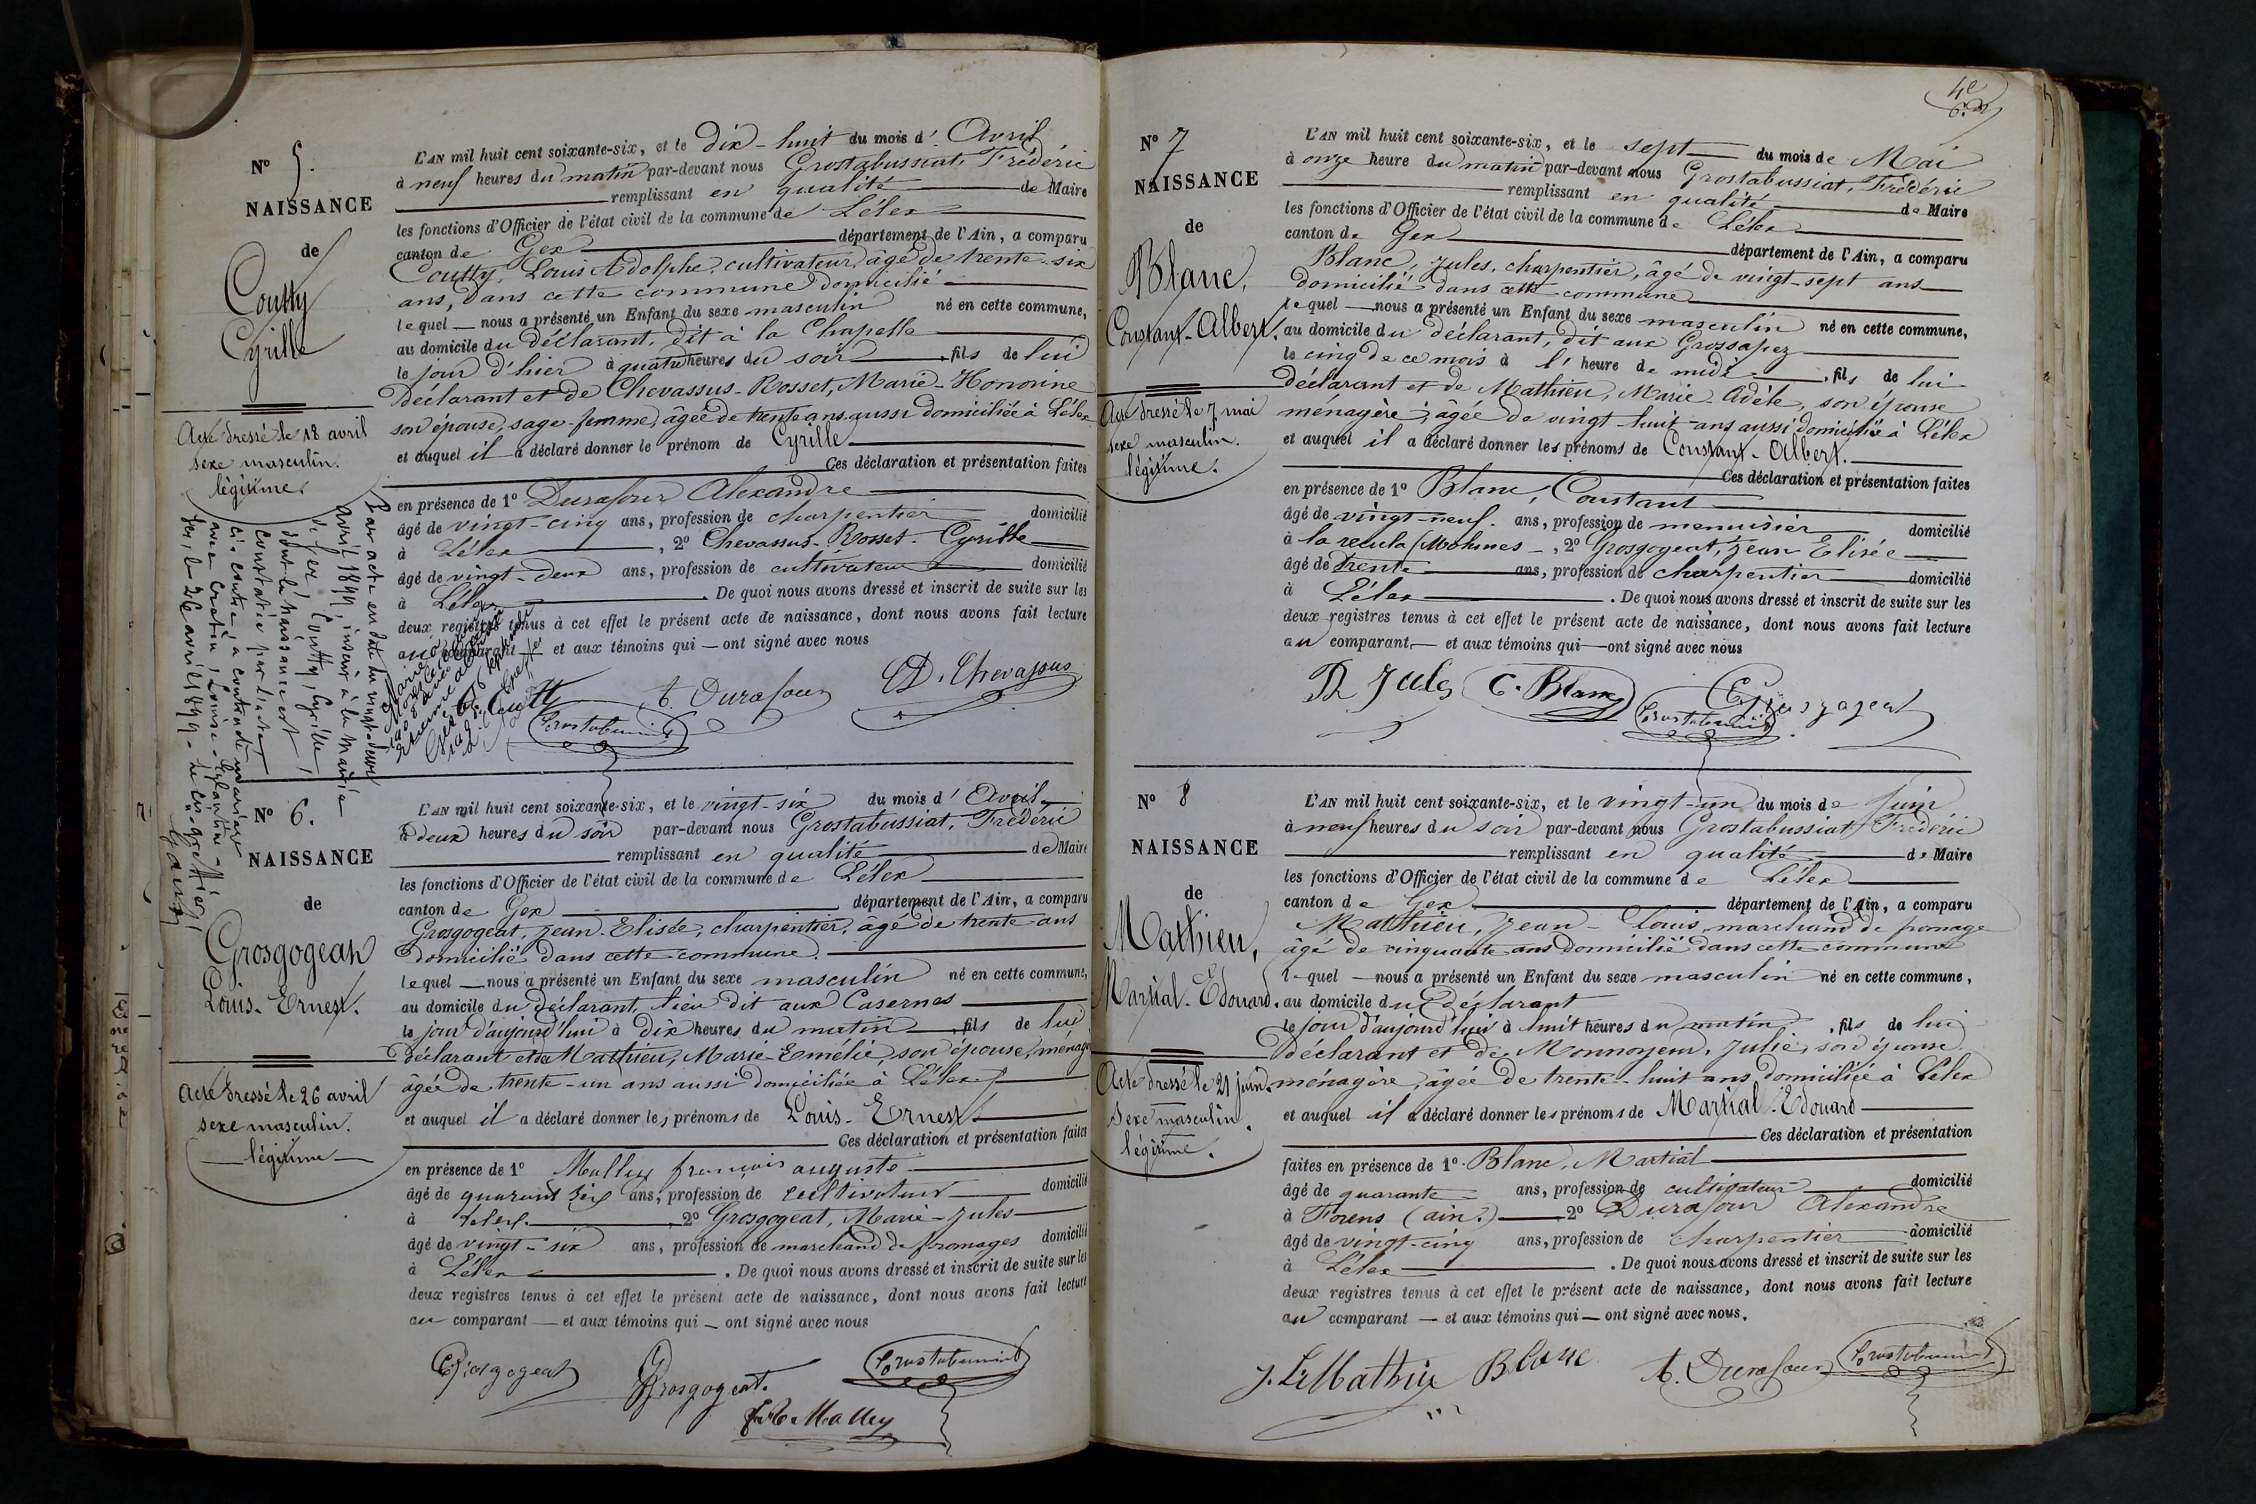 N° 5.
NAISSANCE
de
Coutty
Cyrille
Acte dressé le 18 avril
sexe masculin.
légitime.
Par acte en date du vingt-deux
avril 1899, inscrit à la mairie
de Gex, Coutty, Cyrille
dont la naissance est
constatée par l'acte
ci-contre a contracté mariage
avec Louise
Gex, le 26 avril 1899 - Le Gref-fier,
L'AN mil huit cent soixante-six, et le dix-huit du mois d'Avril
à neuf heures du matin par-devant nous Grostabussiat, Frédéric
remplissant en qualité de Maire
les fonctions d'Officier de l'état civil de la commune de Lélex
canton de Gex département de l'Ain, a comparu
Coutty, Louis Adolphe, cultivateur, âgé de trente-six
ans, dans cette commune domicilié
lequel nous a présenté un Enfant du sexe masculin né en cette commune,
au domicile du déclarant, dit à la Chapelle
le jour d'hier à quatre heures du soir, fils de lui
déclarant et de Chevassus-Rosset, Marie-Honorine
son épouse, sage-femme, âgée de trente ans aussi domiciliée à Lélex
et auquel il a déclaré donner le prénom de Cyrille
Ces déclaration et présentation faites
en présence de 1° Durafour Alexandre
âgé de vingt-cinq ans, profession de charpentier domicilié
à Lélex, 2° Chevassus-Rosset-Cyrille
âgé de vingt-deux ans, profession de cultivateur domicilié
à Lélex. De quoi nous avons dressé et inscrit de suite sur les
deux registres tenus à cet effet le présent acte de naissance, dont nous avons fait lecture
au comparant et aux témoins qui ont signé avec nous
Coutty A. Durafour CD. Chevassus
Grostabussiat
N° 6.
NAISSANCE
de
Grosgogeat
Louis-Ernest.
Acte dressé le 26 avril
sexe masculin.
légitime
L'AN mil huit cent soixante-six, et le vingt-six du mois d'Avril
à deux heures du soir par-devant nous Grostabussiat, Frédéric
remplissant en qualité de Maire
les fonctions d'Officier de l'état civil de la commune de Lélex
canton de Gex département de l'Ain, a comparu
Grosgogeat, Jean-Elisée, charpentier, âgé de trente ans
domicilié dans cette commune.
lequel nous a présenté un Enfant du sexe masculin né en cette commune,
au domicile du déclarant, lieu dit aux Casernes
le jour d'aujourd'hui à dix heures du matin, fils de lui
déclarant et de Mathieu, Marie-Emélie, son épouse, ménag
âgée de trente-un ans aussi domiciliée à Lélex
et auquel il a déclaré donner les prénoms de Louis-Ernest
Ces déclaration et présentation faites
en présence de 1° Malley françois auguste
âgé de quarant six ans, profession de cultivateur domicilié
à Lelex, 2° Grosgogeat, Marie-Jules
âgé de vingt-six ans, profession de marchand de fromages domicilié
à Lélex. De quoi nous avons dressé et inscrit de suite sur les
deux registres tenus à cet effet le présent acte de naissance, dont nous avons fait lecture
au comparant et aux témoins qui ont signé avec nous
Grosgogeat Grosgogeat. Grostabussiat
Malley
4e
N° 7
NAISSANCE
de
Blanc,
Constant-Albert.
Acte dressé le 7 mai
sexe masculin.
légitime.
L'AN mil huit cent soixante-six, et le sept du mois de Mai
à onze heure du matin par-devant nous Grostabussiat, Frédéric
remplissant en qualité de Maire
les fonctions d'Officier de l'état civil de la commune de Lélex
canton de Gex département de l'Ain, a comparu
Blanc, Jules, charpentier, âgé de vingt-sept ans
domicilié dans cette commune
lequel nous a présenté un Enfant du sexe masculin né en cette commune,
au domicile du déclarant, dit aux Grossapez
le cinq de ce mois à l'heure de midi, fils de lui
déclarant et de Mathieu, Marie-Adèle, son épouse
ménagère, âgée de vingt-huit ans aussi domiciliée à Lélex
et auquel il a déclaré donner les prénoms de Constant-Albert.
Ces déclaration et présentation faites
en présence de 1° Blanc, Constant
âgé de vingt-neuf. ans, profession de menuisier domicilié
à la (Molunes, 2° Grosgogeat, Jean Elisée
âgé de trente ans, profession de charpentier domicilié
à Lélex. De quoi nous avons dressé et inscrit de suite sur les
deux registres tenus à cet effet le présent acte de naissance, dont nous avons fait lecture
au comparant et aux témoins qui ont signé avec nous
B Jules C. Blanc Grosgogeat
Grostabussiat
N° 8
NAISSANCE
de
Mathieu,
Martial-Edouard.
Acte dressé le 21 juin.
Sexe masculin.
légitime.
L'AN mil huit cent soixante-six, et le vingt-un du mois de Juin
à neuf heures du soir par-devant nous Grostabussiat Frédéric
remplissant en qualité de Maire
les fonctions d'Officier de l'état civil de la commune de Lélex
canton de Gex département de l'Ain, a comparu
Mathieu, Jean-Louis, marchand de fromage
âgé de cinquante ans domicilié dans cette commune
lequel nous a présenté un Enfant du sexe masculin né en cette commune,
au domicile du déclarant
le jour d'aujourd'hui à huit heures du matin, fils de lui
déclarant et de Monnoyeur, Julie, son épouse
ménagère, âgée de trente-huit ans domiciliée à Lélex
et auquel il a déclaré donner les prénoms de Martial-Edouard
Ces déclaration et présentation
faites en présence de 1° Blanc, Martial
âgé de quarante ans, profession de cultivateur domicilié
à Forens (ain.) 2° Durafour Alexandre
âgé de vingt-cinq ans, profession de charpentier domicilié
à Lélex. De quoi nous avons dressé et inscrit de suite sur les
deux registres tenus à cet effet le présent acte de naissance, dont nous avons fait lecture
au comparant et aux témoins qui ont signé avec nous.
J. L. Mathieu Blanc A. Durafour Grostabussiat